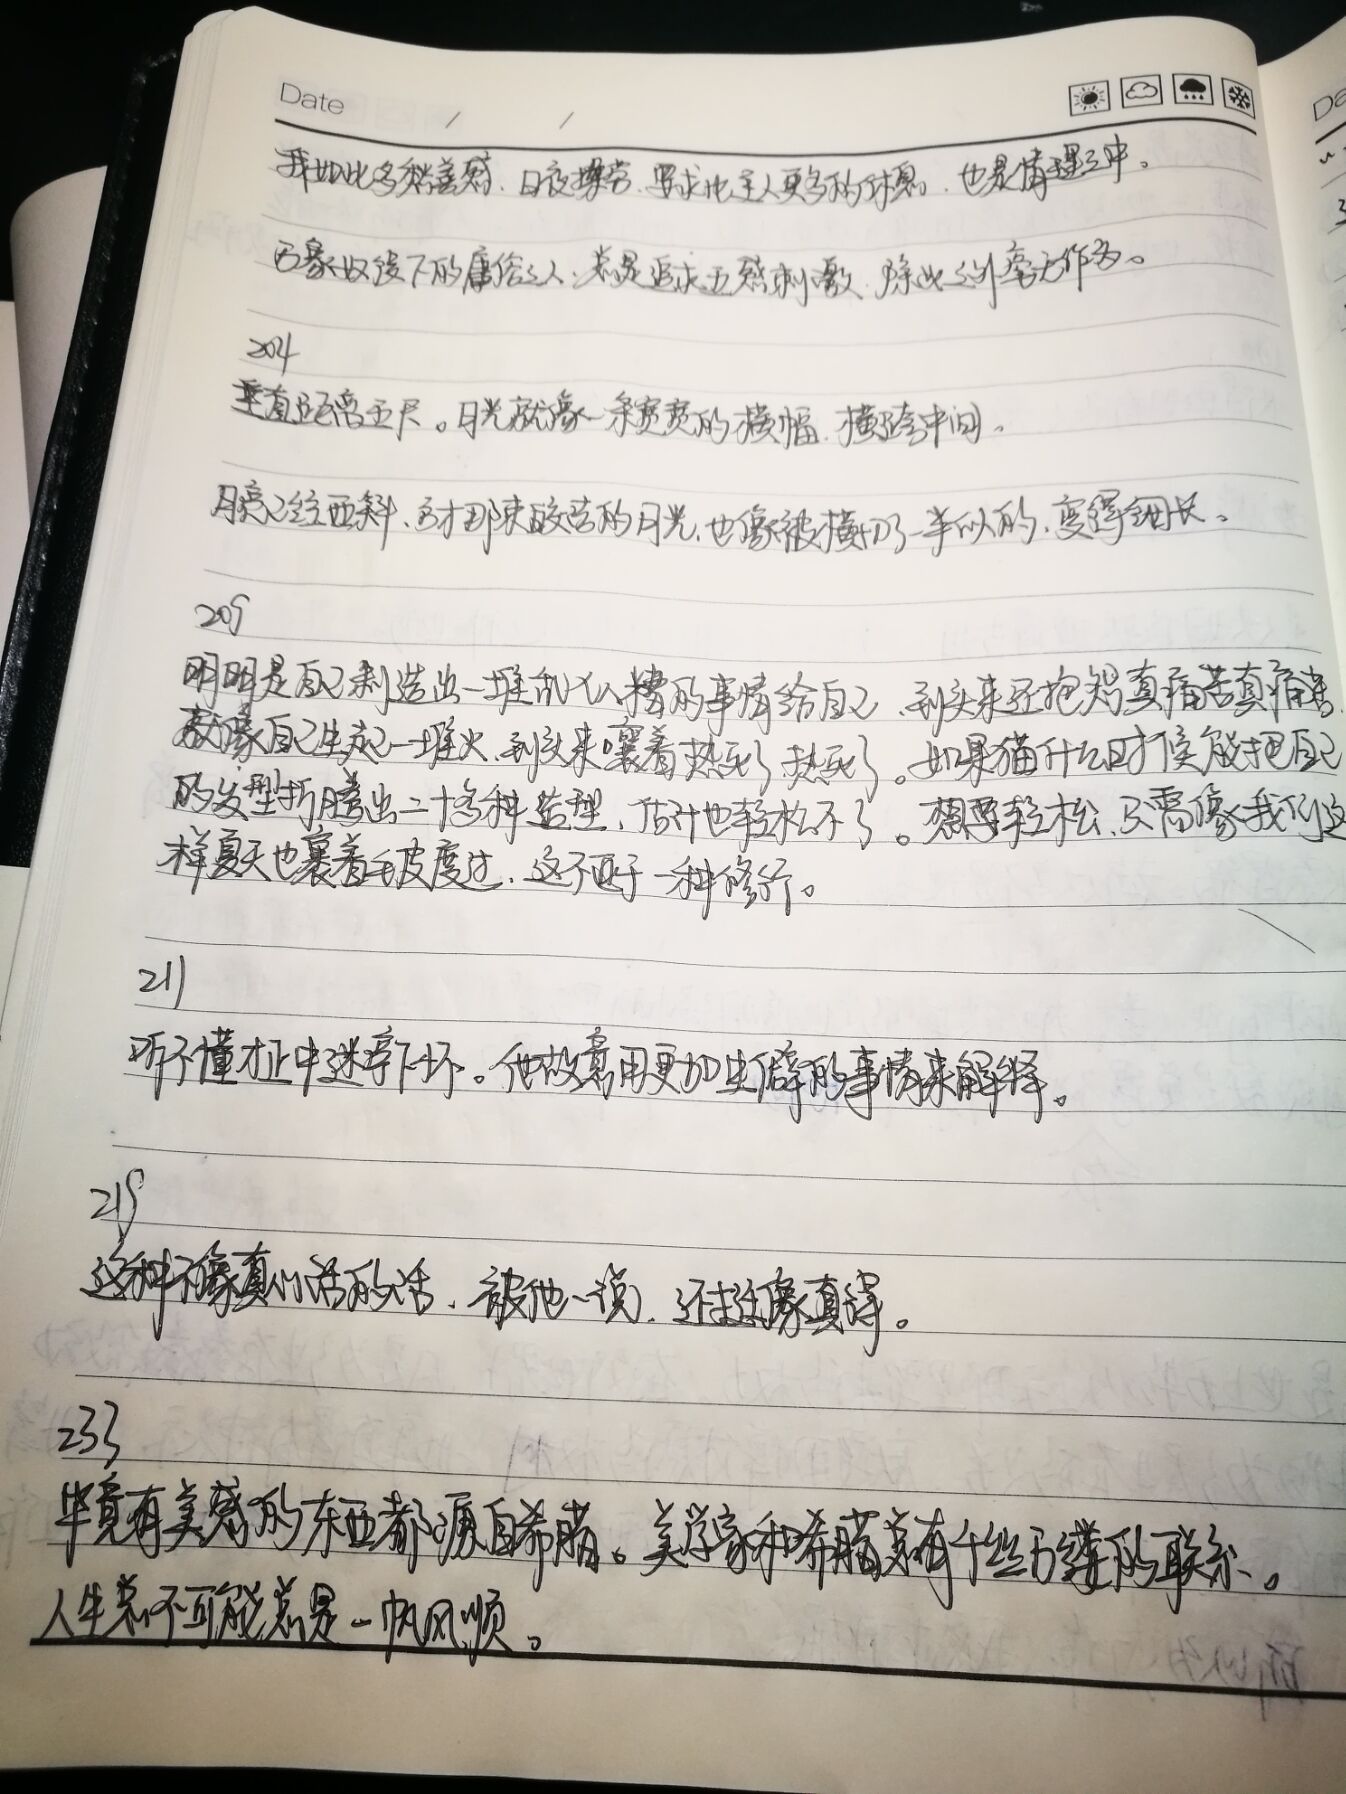 Date / /
我如此多愁善感、日夜操劳、要求比主人更多的休息、也是情理之中。
万象奴役下的庸俗之人、总是追求五感刺激、除此之外毫无作为。
204
垂直距离五尺。月光就像一条宽宽的横幅、横跨中间。
月亮已经西斜、方才那束皎洁的月光、也像被横切了一半似的、变得细长。
209
明明是自己制造出一堆乱七八糟的事情给自己、到头来还抱怨真痛苦真痛苦、
就像自己生起一堆火、到头来嚷着热死了热死了。如果猫什么时候能把自己
的发型折腾出二十多种造型、估计也轻松不了。想要轻松、只需像我们这
样夏天也裹着毛皮度过、这不亚于一种修行。
211
听不懂才正中迷亭下怀。他故意用更加生僻的事情来解释。
219
这种不像真心话的话、被他一说、还挺像真得。
233
毕竟有美感的东西都源自希腊。美学家和希腊总有千丝万缕的联系。
人生总不可能总是一帆风顺。